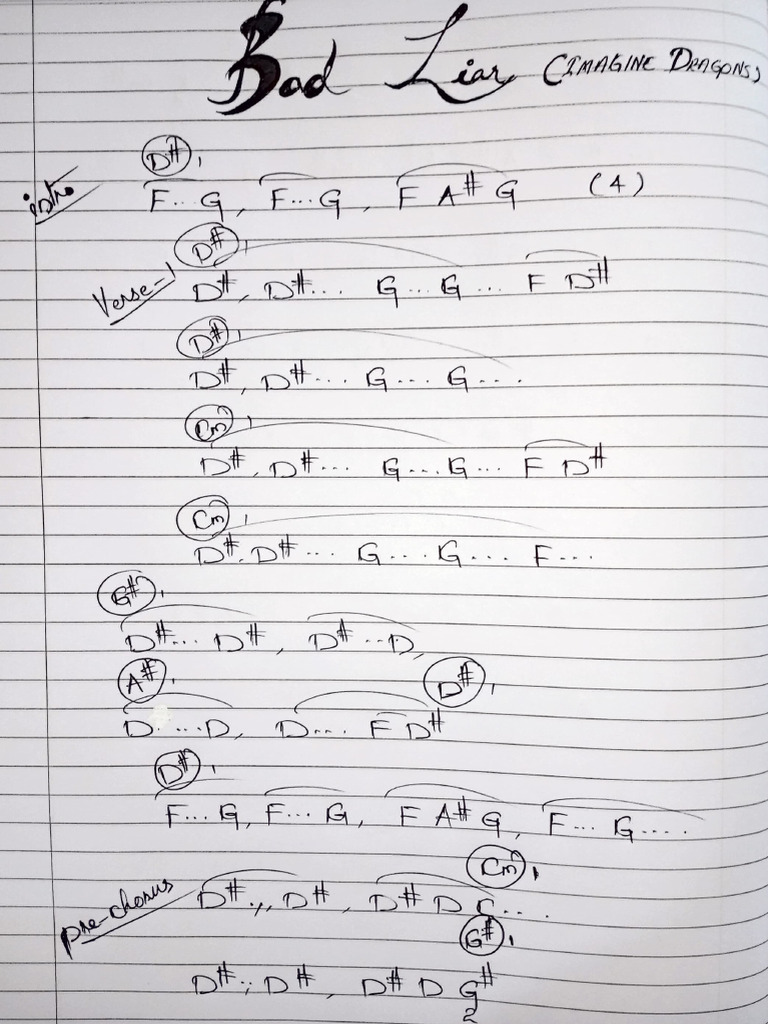 Bad Liar (IMAGINE DRAGONS)
D#,
intro F...G, F...G, F A# G (4)
D#,
Verse-1 D#, D#... G...G... F D#
D#,
D#, D#... G... G....
Cm,
D#, D#... G...G... F D#
Cm,
D#, D#... G... G... F...
G#,
D#... D#, D#...D,
A#, D#,
D....D, D... F D#
D#,
F...G, F...G, F A# G, F... G....
Cm,
pre-chorus D#.,, D#, D# D C....
G#,
D#.;, D#, D# D G#
2